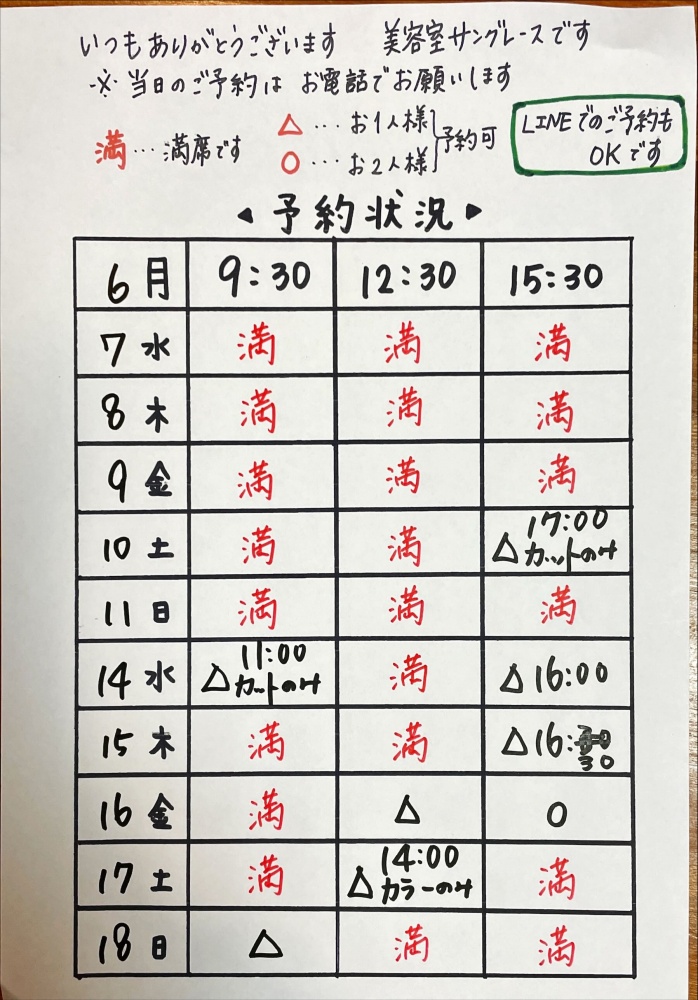 いつもありがとうございます 美容室サングレースです
※当日のご予約は お電話でお願いします
満…満席です
△…お1人様
○…お2人様
予約可
LINEでのご予約も
OKです
◀予約状況▶
6月 9:30 12:30 15:30
7 水 満 満 満
8 木 満 満 満
9 金 満 満 満
10 土 満 満 △17:00カットのみ
11 日 満 満 満
14 水 △11:00カットのみ 満 △16:00
15 木 満 満 △16:30
16 金 満 △ ○
17 土 満 △14:00カラーのみ 満
18 日 △ 満 満